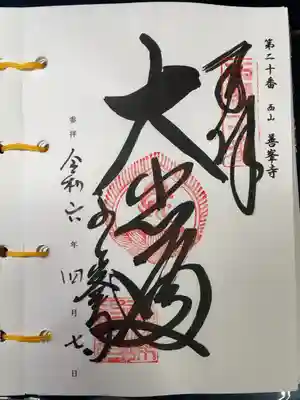 第二十番 西山 善峯寺
奉拝
大悲殿
善峯寺
奉拝 令和六年四月七日